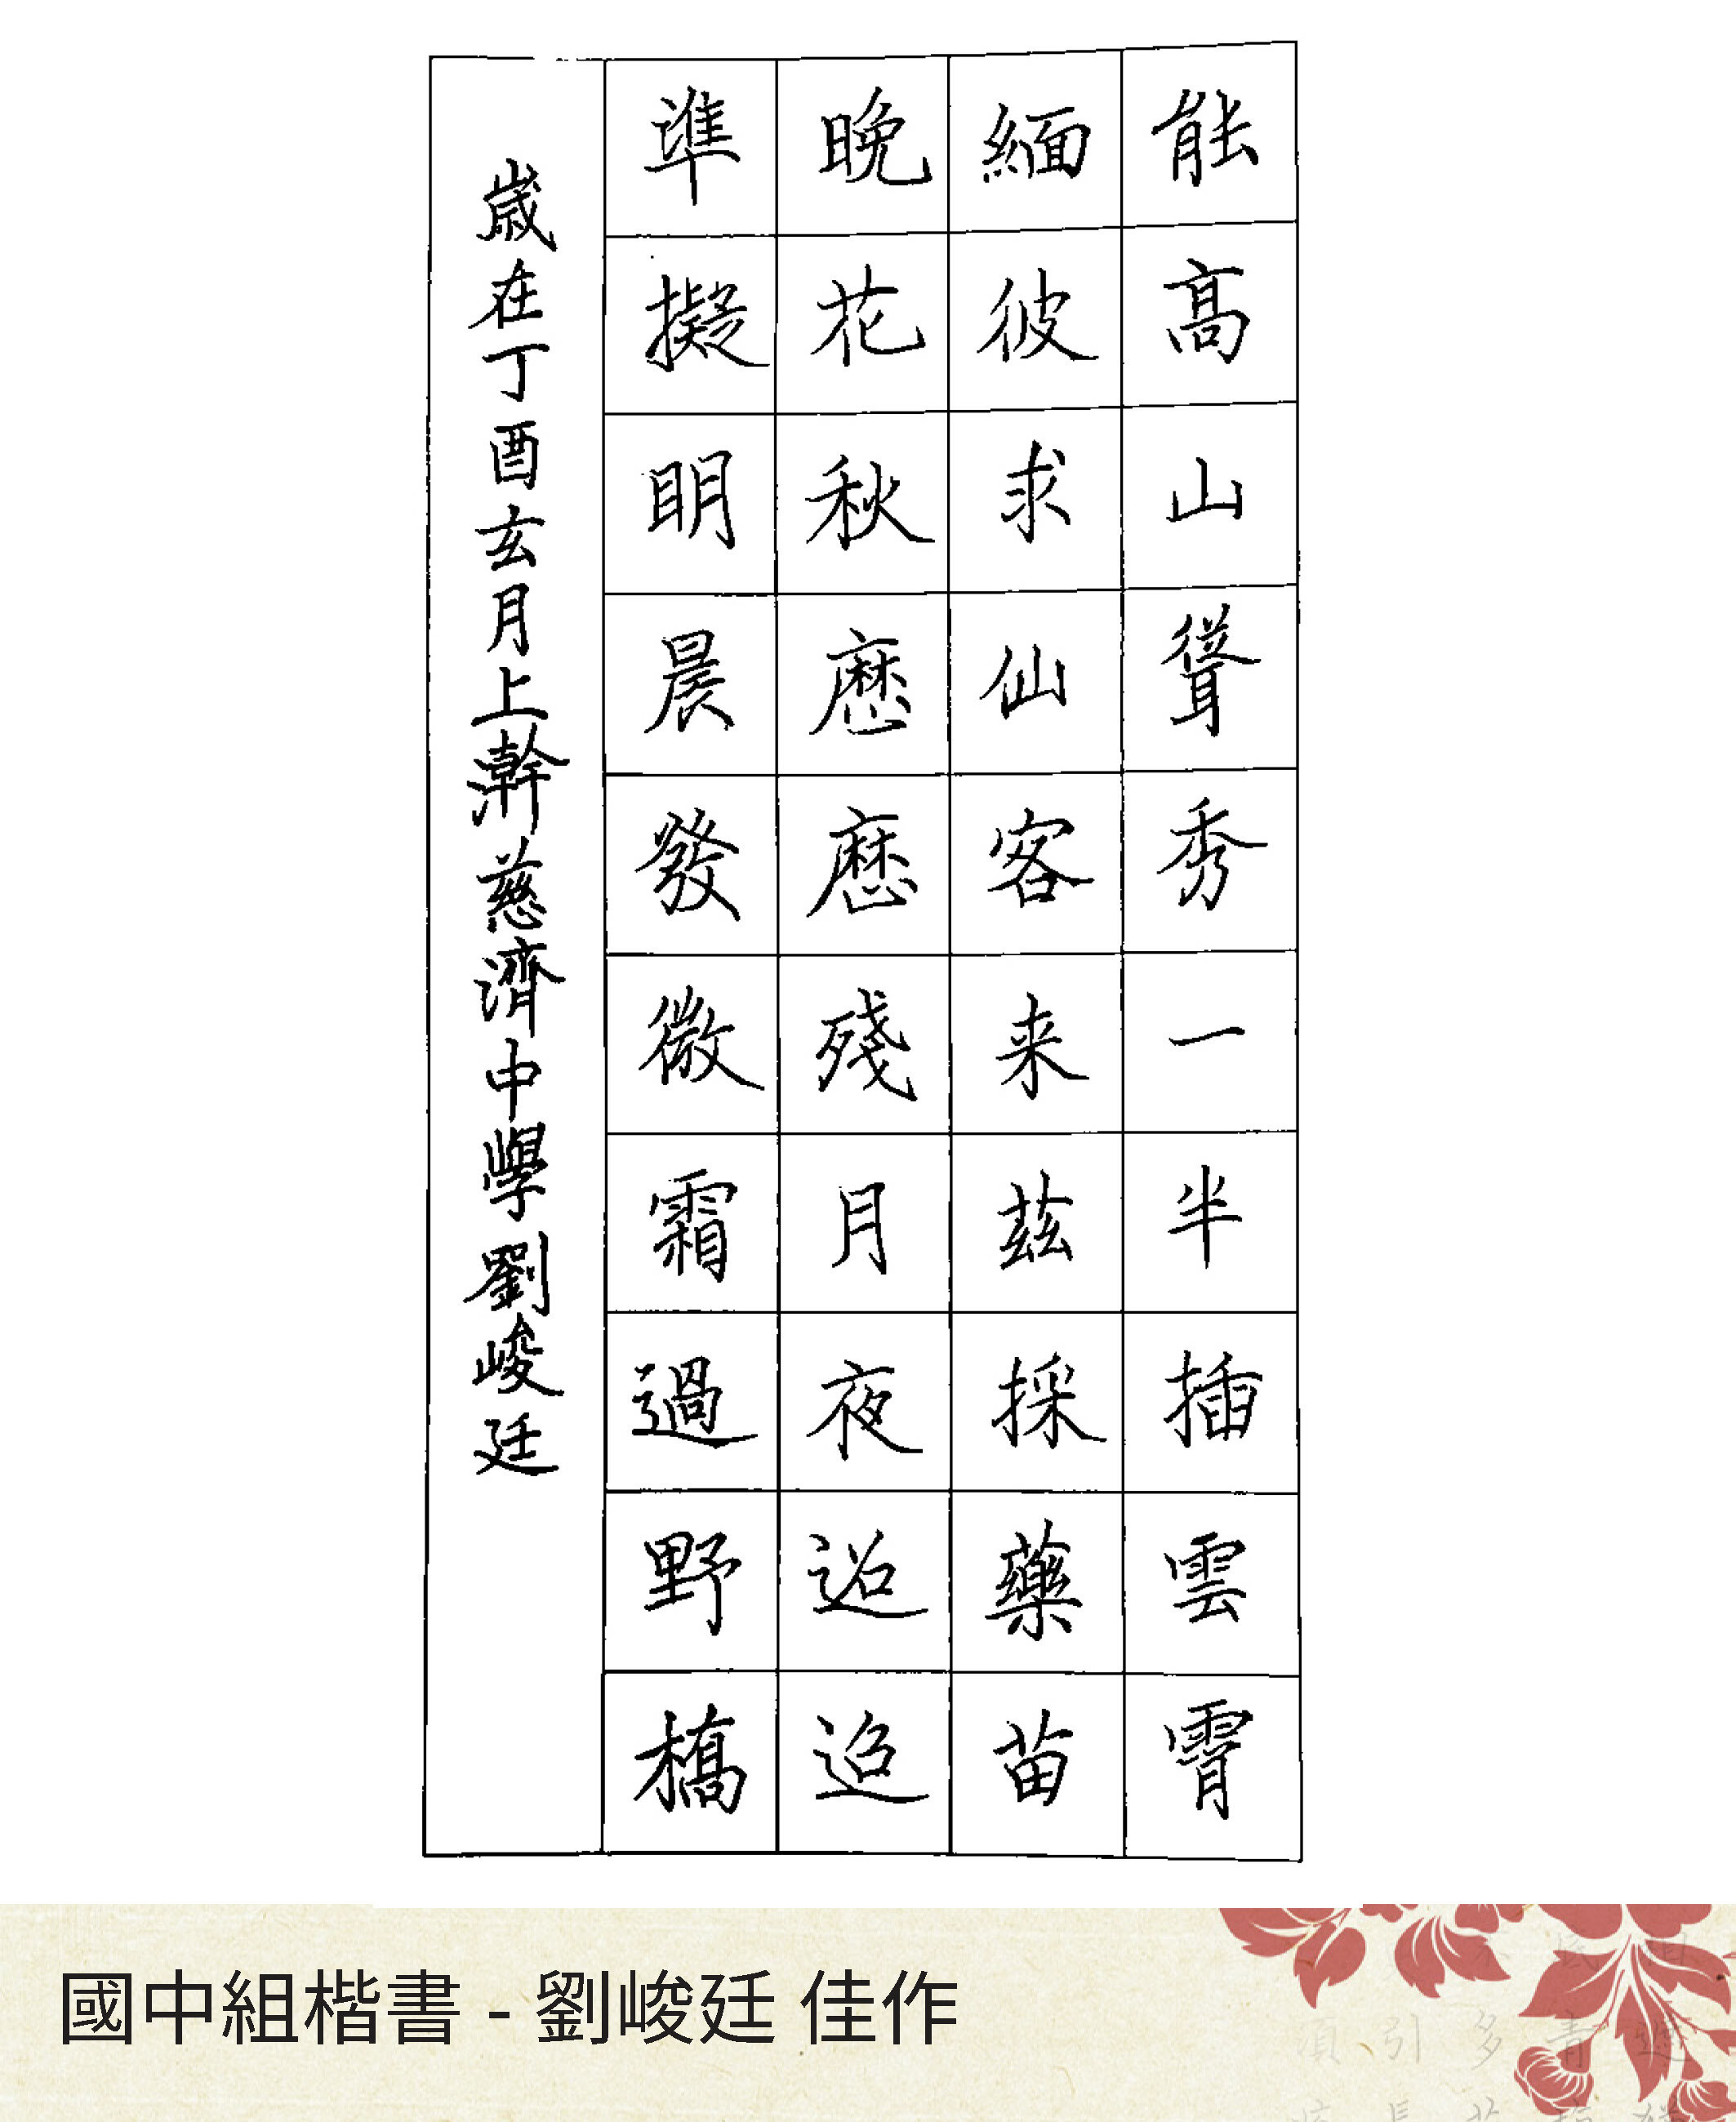 能高山聳秀一半插雲霄
緬彼求仙客来茲採藥苗
晚花秋懕懕殘月夜迢迢
準擬明晨發微霜過野橋
歲在丁酉玄月上澣慈濟中學劉峻廷
國中組楷書 - 劉峻廷 佳作